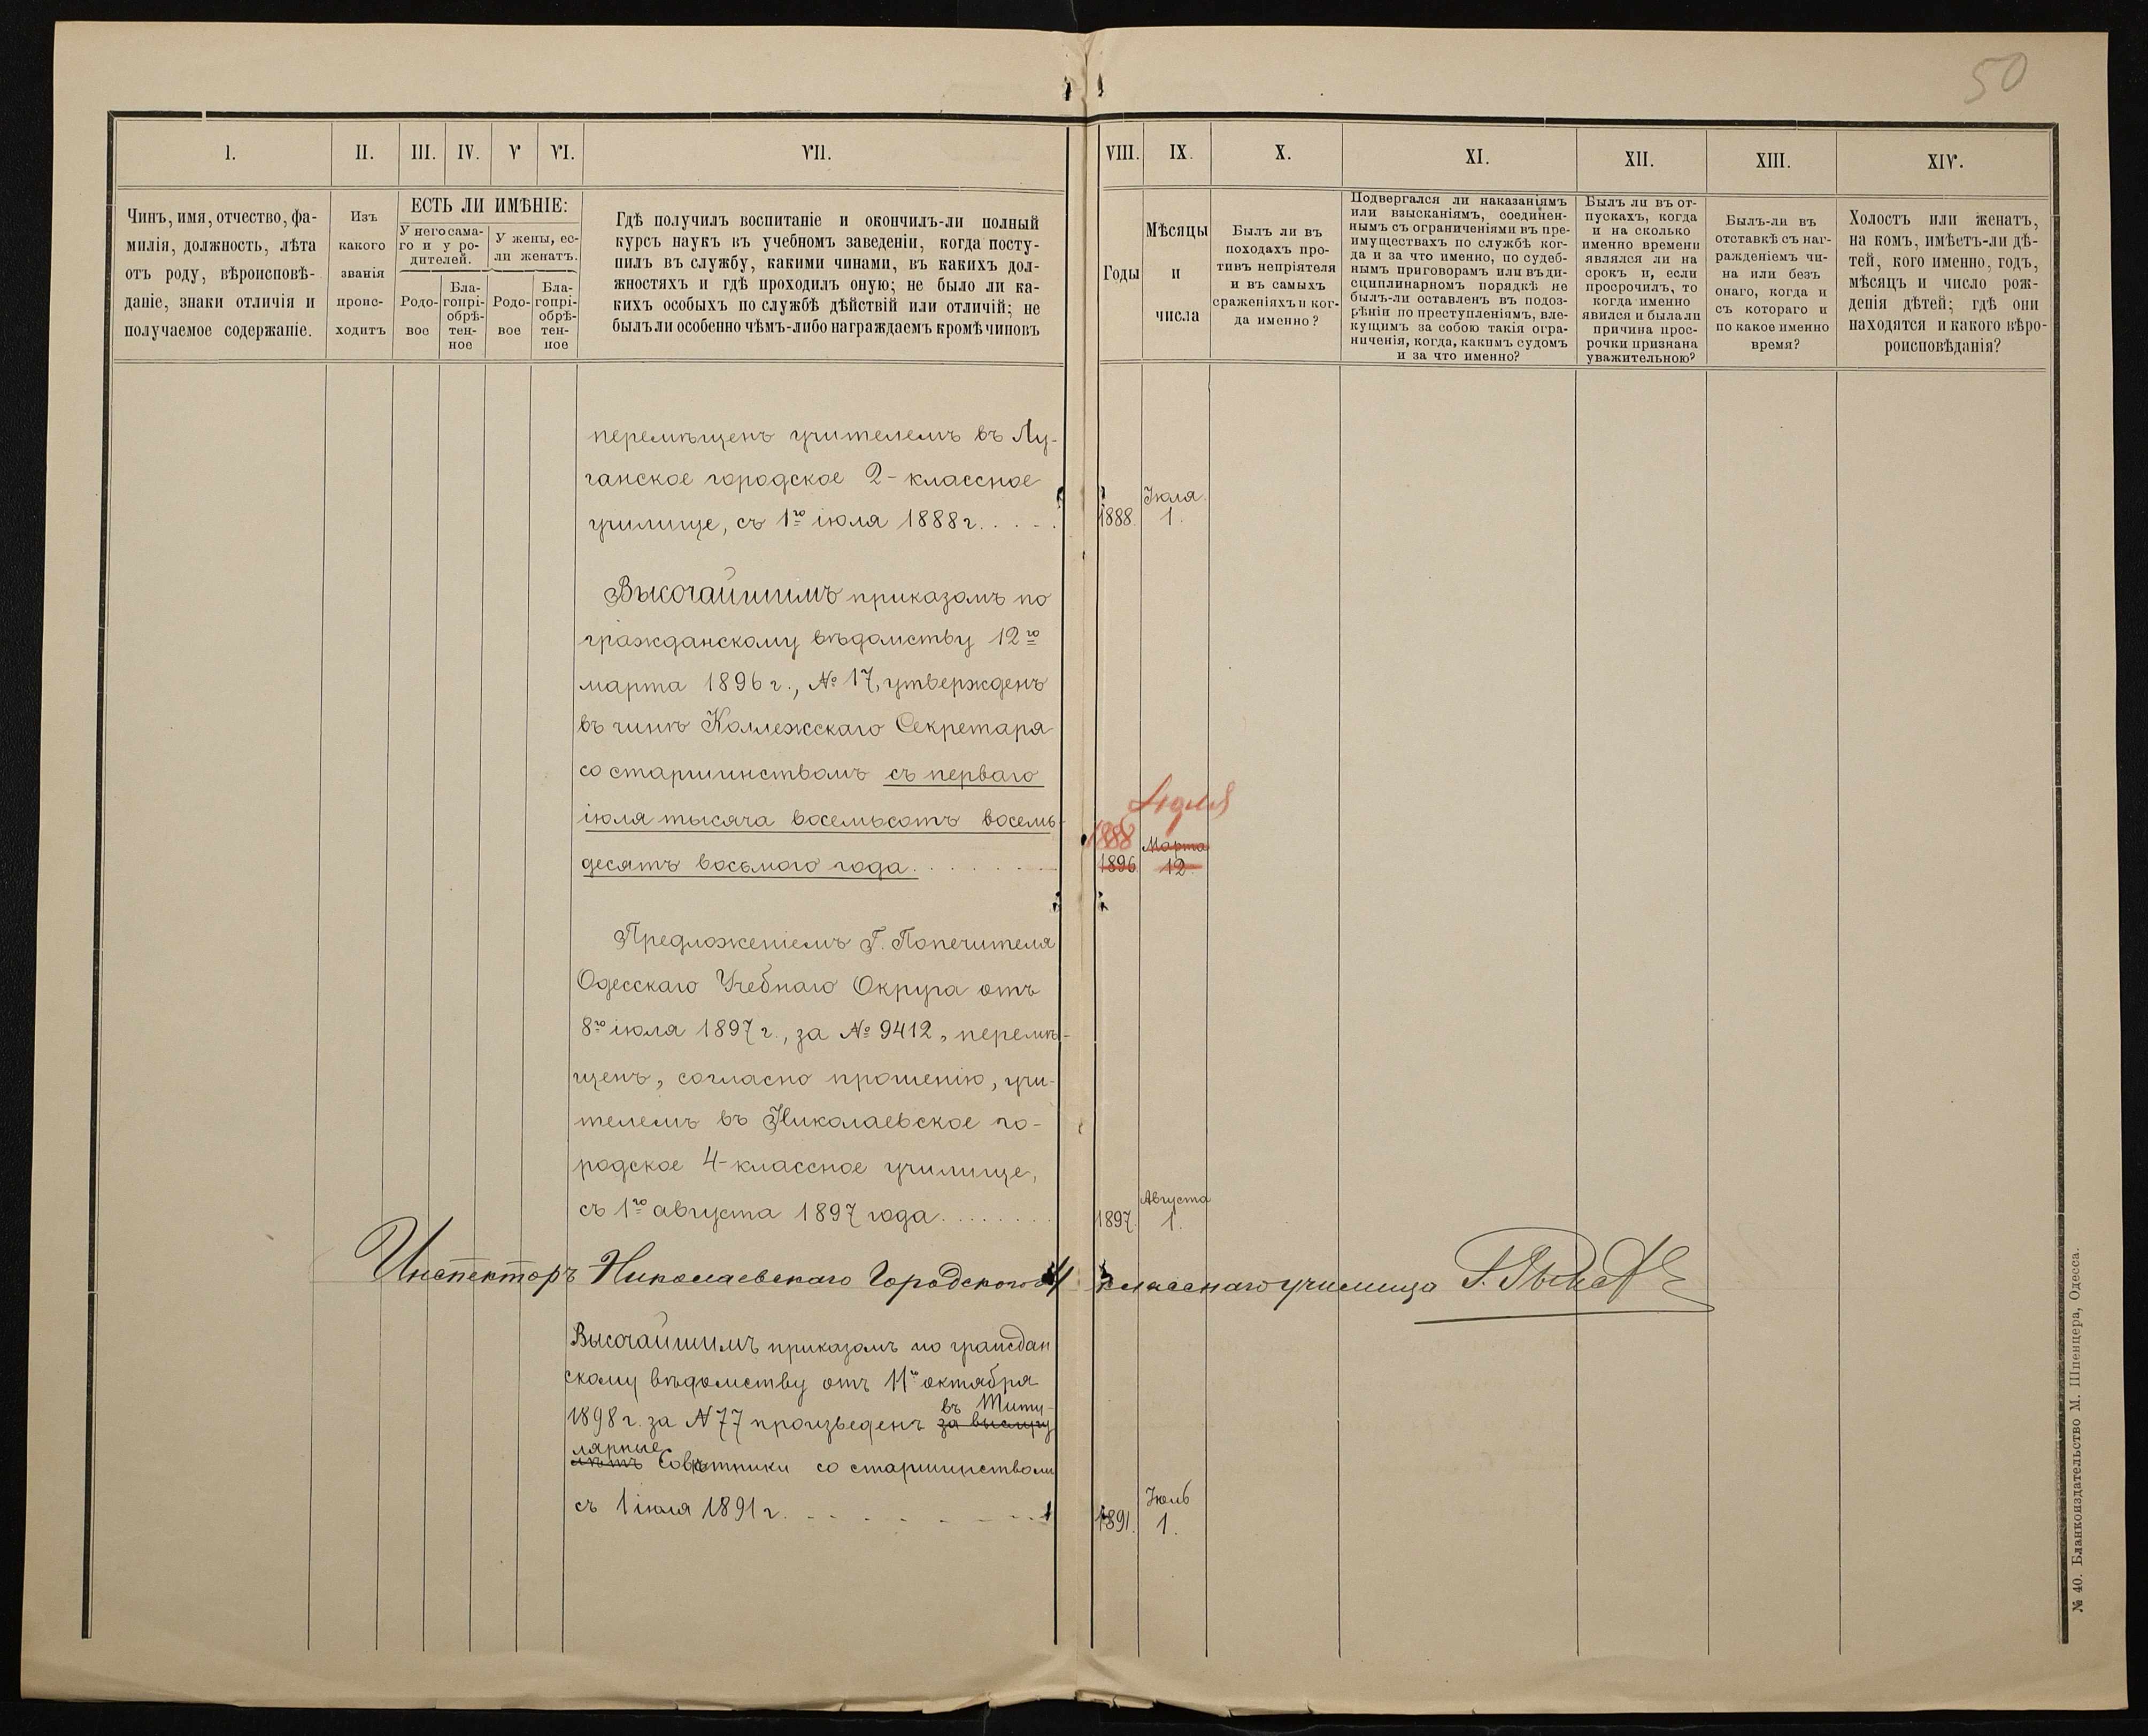 50
I.
II.
III.
IV.
V
VI.
VII.
VIII.
IX.
X.
XI.
XII.
XIII.
XIV.
Чинъ, имя, отчество, фа-
милія, должность, лѣта
отъ роду, вѣроисповѣ-
даніе, знаки отличія и
получаемое содержаніе.
Изъ
какого
званія
проис-
ходитъ
ЕСТЬ ЛИ ИМѢНІЕ:
У него сама-
го и у ро-
дителей.
У жены, ес-
ли женатъ.
Родо-
вое
Бла-
гопрі-
обрѣ-
тен-
ное
Родо-
вое
Бла-
гопрі-
обрѣ-
тен-
ное
Гдѣ получилъ воспитаніе и окончилъ-ли полный
курсъ наукъ въ учебномъ заведеніи, когда посту-
пилъ въ службу, какими чинами, въ какихъ дол-
жностяхъ и гдѣ проходилъ оную; не было ли ка-
кихъ особыхъ по службѣ дѣйствій или отличій; не
былъ ли особенно чѣмъ-либо награждаемъ кромѣ чиновъ
Годы
Мѣсяцы
и
числа
Былъ ли въ
походахъ про-
тивъ непріятеля
и въ самыхъ
сраженіяхъ и ког-
да именно?
Подвергался ли наказаніямъ
или взысканіямъ, соединен-
нымъ съ ограниченіями въ пре-
имуществахъ по службѣ ког-
да и за что именно, по судеб-
нымъ приговорамъ или въ ди-
сциплинарномъ порядкѣ не
былъ-ли оставленъ въ подоз-
рѣніи по преступленіямъ, вле-
кущимъ за собою такія огра-
ниченія, когда, какимъ судомъ
и за что именно?
Былъ ли въ от-
пускахъ, когда
и на сколько
именно времени
являлся ли на
срокъ и, если
просрочилъ, то
когда именно
явился и была ли
причина прос-
рочки признана
уважительною?
Былъ-ли въ
отставкѣ съ наг-
ражденіемъ чи-
на или безъ
онаго, когда и
съ котораго и
по какое именно
время?
Холостъ или женатъ,
на комъ, имѣетъ-ли дѣ-
тей, кого именно, годъ,
мѣсяцъ и число рож-
денія дѣтей; гдѣ они
находятся и какого вѣро-
роисповѣданія?
перемѣщенъ учителемъ въ Лу-
ганское городское 2-классное
училище, съ 1го іюля 1888 г. . . . .
1888.
Іюля
1.
Высочайшимъ приказомъ по
гражданскому вѣдомству 12го
марта 1896 г., № 17, утвержденъ
въ чинѣ Коллежскаго Секретаря
со старшинствомъ съ перваго
іюля тысяча восемьсотъ восемь-
десятъ восьмого года. . . . . . .
1888
1896
Марта
12.
Предложеніемъ Г. Попечителя
Одесскаго Учебнаго Округа отъ
8го іюля 1897 г., за № 9412, перемѣ-
щенъ, согласно прошенію, учи-
телемъ въ Николаевское го-
родское 4-классное училище,
съ 1го августа 1897 года. . . . . . . .
1897.
Августа
1.
Инспекторъ Николаевскаго Городского 4 класснаго училища
Высочайшимъ приказомъ по граждан
скому вѣдомству отъ 11го октября
въ Титу-
1898 г. за N 77 произведенъ за выслугу
лярные
лѣтъ Совѣтники со старшинствомъ
съ 1 іюля 1891 г. . . . . . . .
1891.
Іюль
1.
№ 40. Бланкоиздательство М. Шпенцера, Одесса.